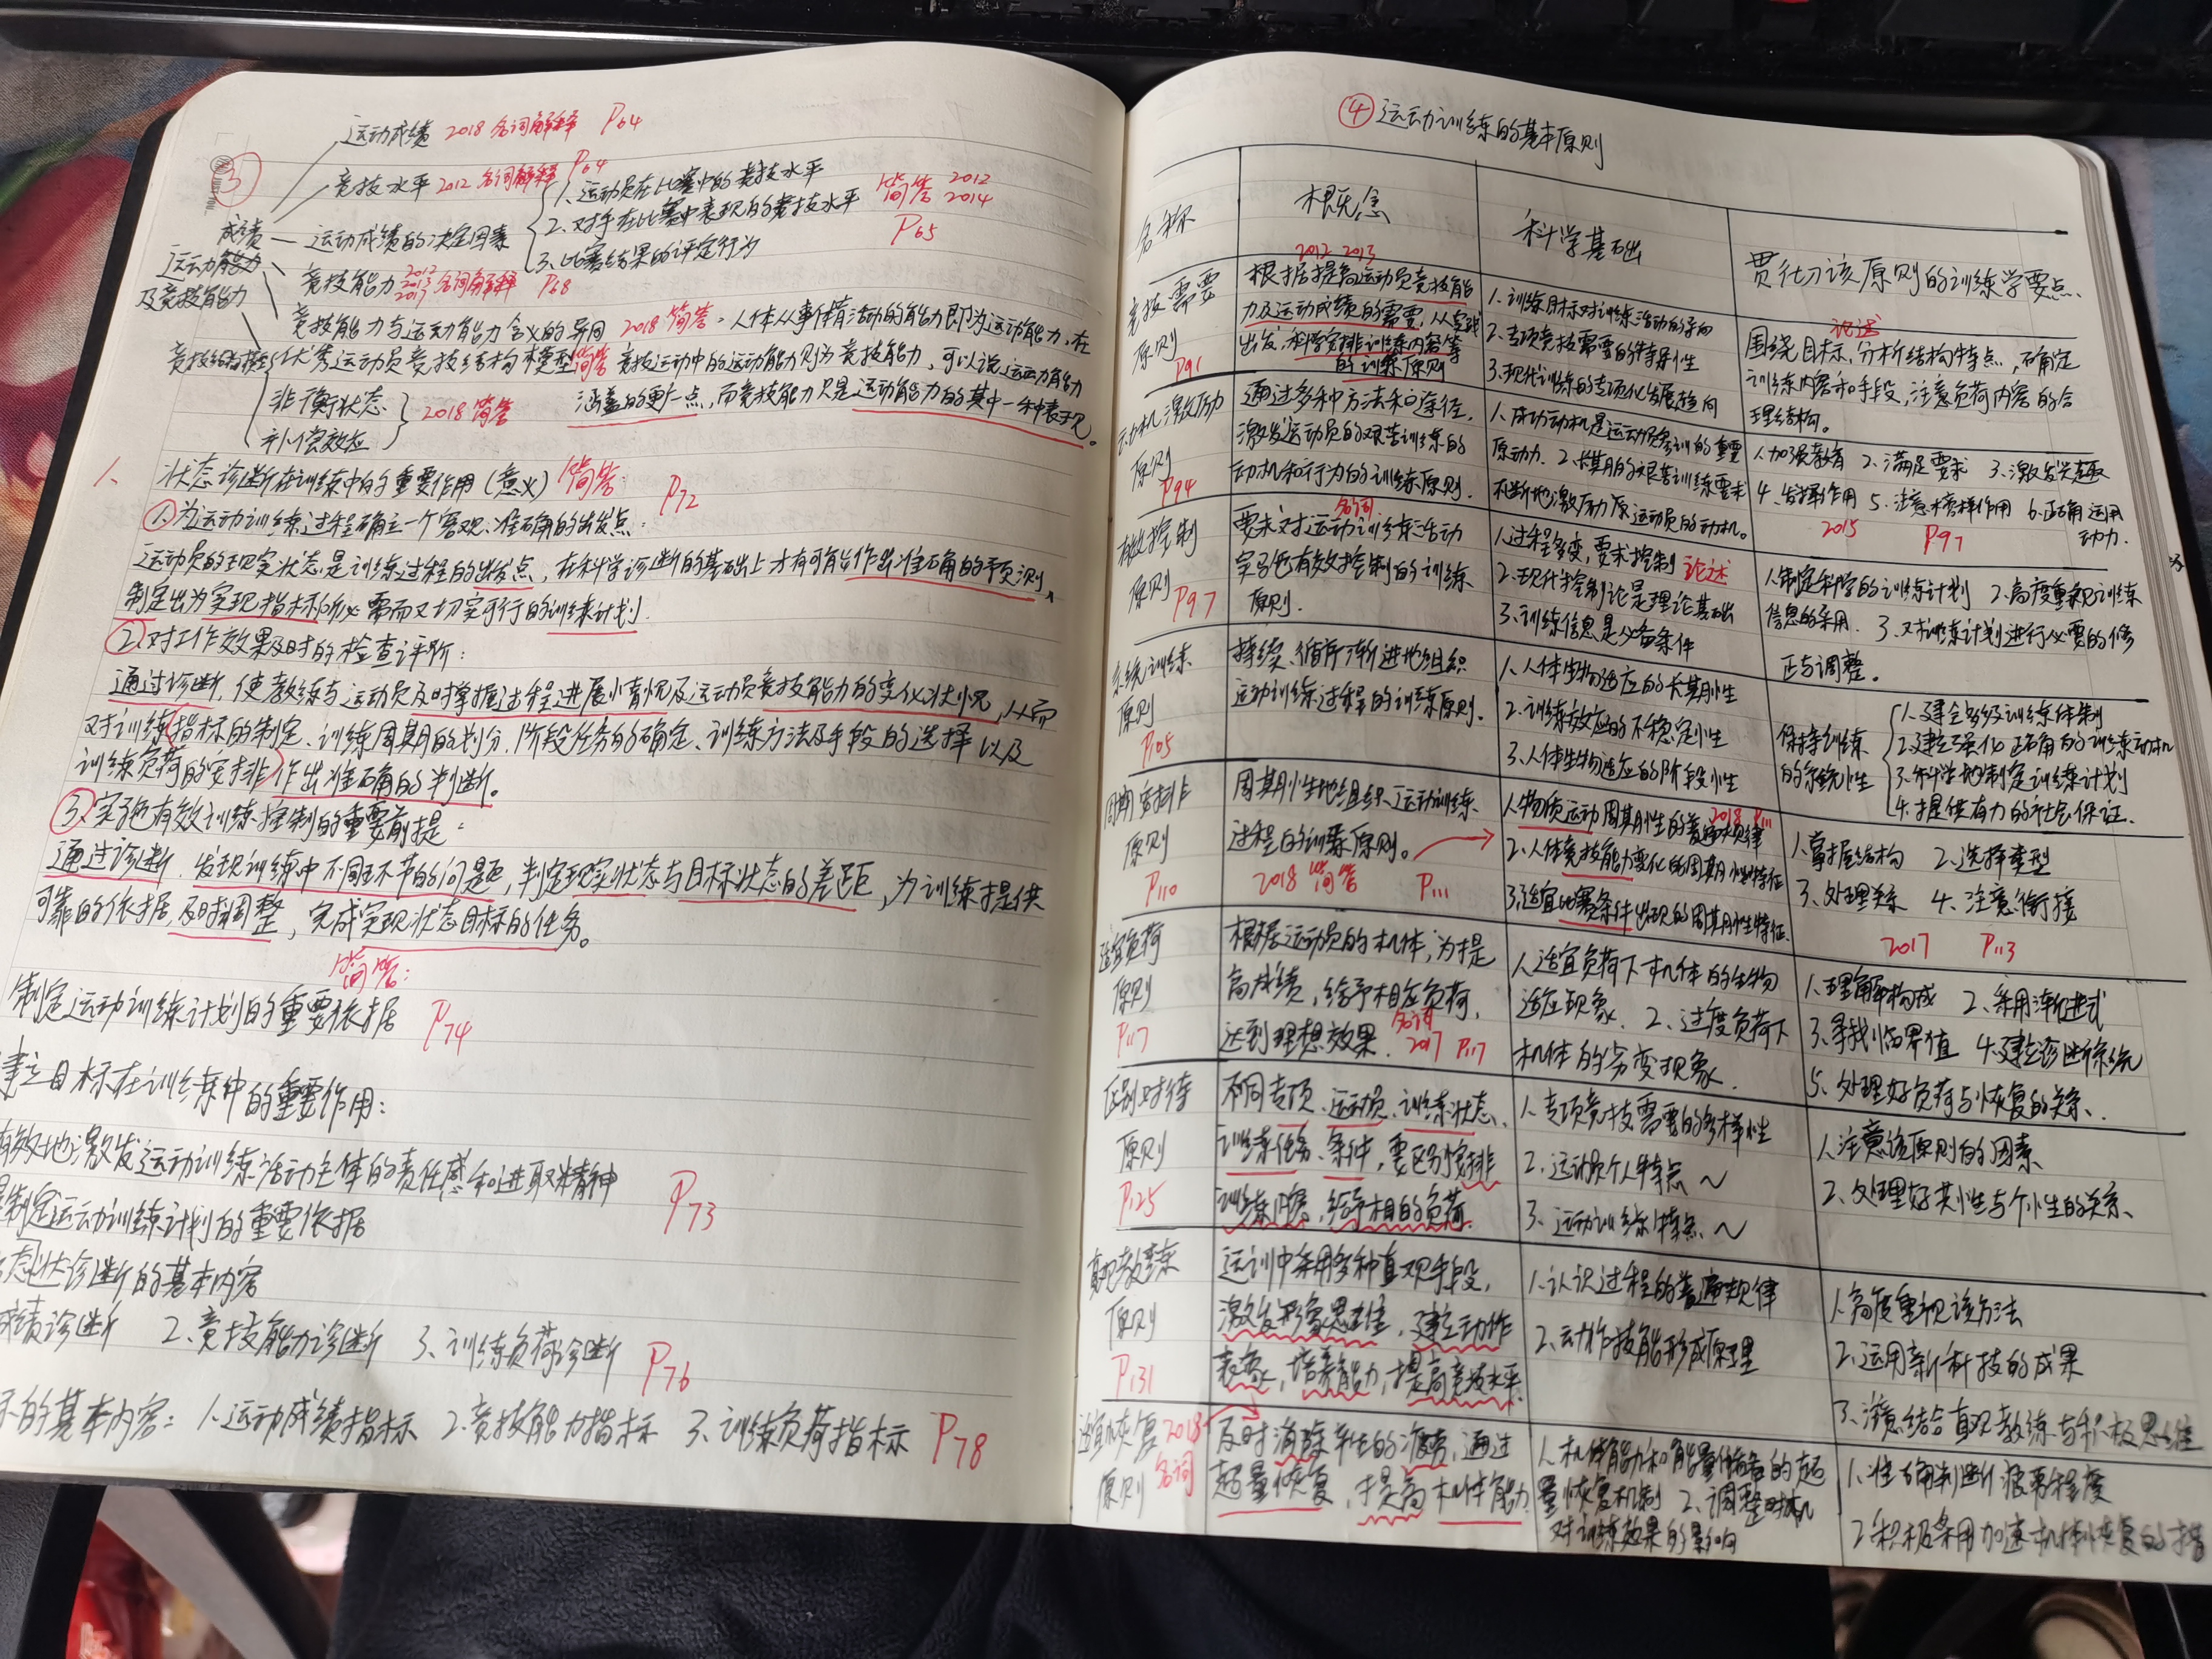 ③
运动成绩 2018 名词解释 P64
竞技水平 2012 名词解释 P64
成绩
运动能力
及竞技能力
运动成绩的决定因素
1. 运动员在比赛中的竞技水平
2. 对手在比赛中表现的竞技水平
3. 比赛结果的评定行为
简答 2012 2014
P65
竞技能力 2012 2017 名词解释 P68
竞技能力与运动能力含义的异同 2018 简答
人体从事体育活动的能力即为运动能力,在
竞技运动中的运动能力则为竞技能力,可以说运动能力
涵盖的更广一点,而竞技能力只是运动能力的其中一种表现。
优秀运动员竞技结构模型 简答
非衡状态
补偿效应
2018 简答
状态诊断在训练中的重要作用(意义)简答: P72
①为运动训练过程确立一个客观、准确的出发点:
运动员的现实状态是训练过程的出发点,在科学诊断的基础上才有可能作出准确的预测,
制定出为实现指标所必需而又切实可行的训练计划.
②对工作效果及时的检查评价:
通过诊断,使教练与运动员及时掌握过程进展情况及运动员竞技能力的变化状况,从而
对训练指标的制定、训练周期的划分、阶段任务的确定、训练方法及手段的选择以及
训练负荷的安排作出准确的判断。
③实施有效训练控制的重要前提:
通过诊断.发现训练中不同环节的问题,判定现实状态与目标状态的差距,为训练提供
可靠的依据,及时调整,完成实现状态目标的任务。
简答:
制定运动训练计划的重要依据 P74
建立目标在训练中的重要作用:
有效地激发运动训练活动主体的责任感和进取精神
制定运动训练计划的重要依据
P73
态状诊断的基本内容
成绩诊断 2、竞技能力诊断 3、训练负荷诊断 P76
的基本内容: 1.运动成绩指标 2.竞技能力指标 3.训练负荷指标 P78
④运动训练的基本原则
名称
概念
科学基础
贯彻该原则的训练学要点
竞技需要
原则
P91
2012 2013
根据提高运动员竞技能
力及运动成绩的需要,从实战
出发,科学安排训练内容等
的训练原则
1.训练目标对训练活动的导向
2.专项竞技需要的特异性
3.现代训练的专项化发展趋向
论述
围绕目标,分析结构特点,确定
训练内容和手段,注意负荷内容的合
理结构。
动机激励
原则
P94
通过多种方法和途径,
激发运动员的艰苦训练的
动机和行为的训练原则.
1.成功动机是运动员参训的重要
原动力. 2.长期的艰苦训练要求
不断地激励原运动员的动机。
1.加强教育 2.满足要求 3.激发兴趣
4.发挥作用 5.注意榜样作用 6.正确运用
动力.
2015 P97
有效控制
原则
P97
名词
要求对运动训练活动
实施有效控制的训练
原则.
1.过程多变,要求控制 论述
2.现代控制论是理论基础
3.训练信息是必备条件
1.制定科学的训练计划 2.高度重视训练
信息的采用. 3.对训练计划进行必要的修
正与调整。
系统训练
原则
P105
持续、循序渐进地组织
运动训练过程的训练原则.
1.人体生物适应的长期性
2.训练效应的不稳定性
3.人体生物适应的阶段性
保持训练
的系统性
1.建全多级训练体制
2.建立强化正确的训练动机
3.科学地制定训练计划
4.提供有力的社会保证.
周期安排
原则
P110
周期性地组织运动训练
过程的训练原则。
2018 简答 P111
1.物质运动周期性的普遍规律
2018 P111
2.人体竞技能力变化的周期性特征
3.适宜比赛条件出现的周期性特征.
1.掌握结构 2.选择类型
3.处理关系 4.注意衔接
2017 P113
适宜负荷
原则
P117
根据运动员的机体,为提
高成绩,给予相应负荷,
达到理想效果.
名词 2017 P117
1.适宜负荷下机体的生物
适应现象. 2.过度负荷下
机体的劣变现象.
1.理解构成 2.采用渐进式
3.寻找临界值 4.建立诊断系统
5.处理好负荷与恢复的关系.
区别对待
原则
P125
不同专项、运动员、训练状态、
训练任务、条件,要区别安排
训练内容,给予相的负荷.
1.专项竞技需要的多样性
2.运动员个人特点~
3.运动训练特点~
1.注意该原则的因素
2.处理好共性与个性的关系、
直观教练
原则
P131
运训中采用多种直观手段,
激发形象思维,建立动作
表象,培养能力,提高竞技水平.
1.认识过程的普遍规律
2.动作技能形成原理
1.高度重视该方法
2.运用新科技的成果
3.注意结合直观教练与积极思维
适宜恢复
原则
2018 名词
及时消除产生的疲劳,通过
超量恢复,提高机体能力
1.机体能力和能量储备的超
量恢复机制 2.调整时机
对训练效果的影响
1.准确判断疲劳程度
2.积极采用加速机体恢复的措